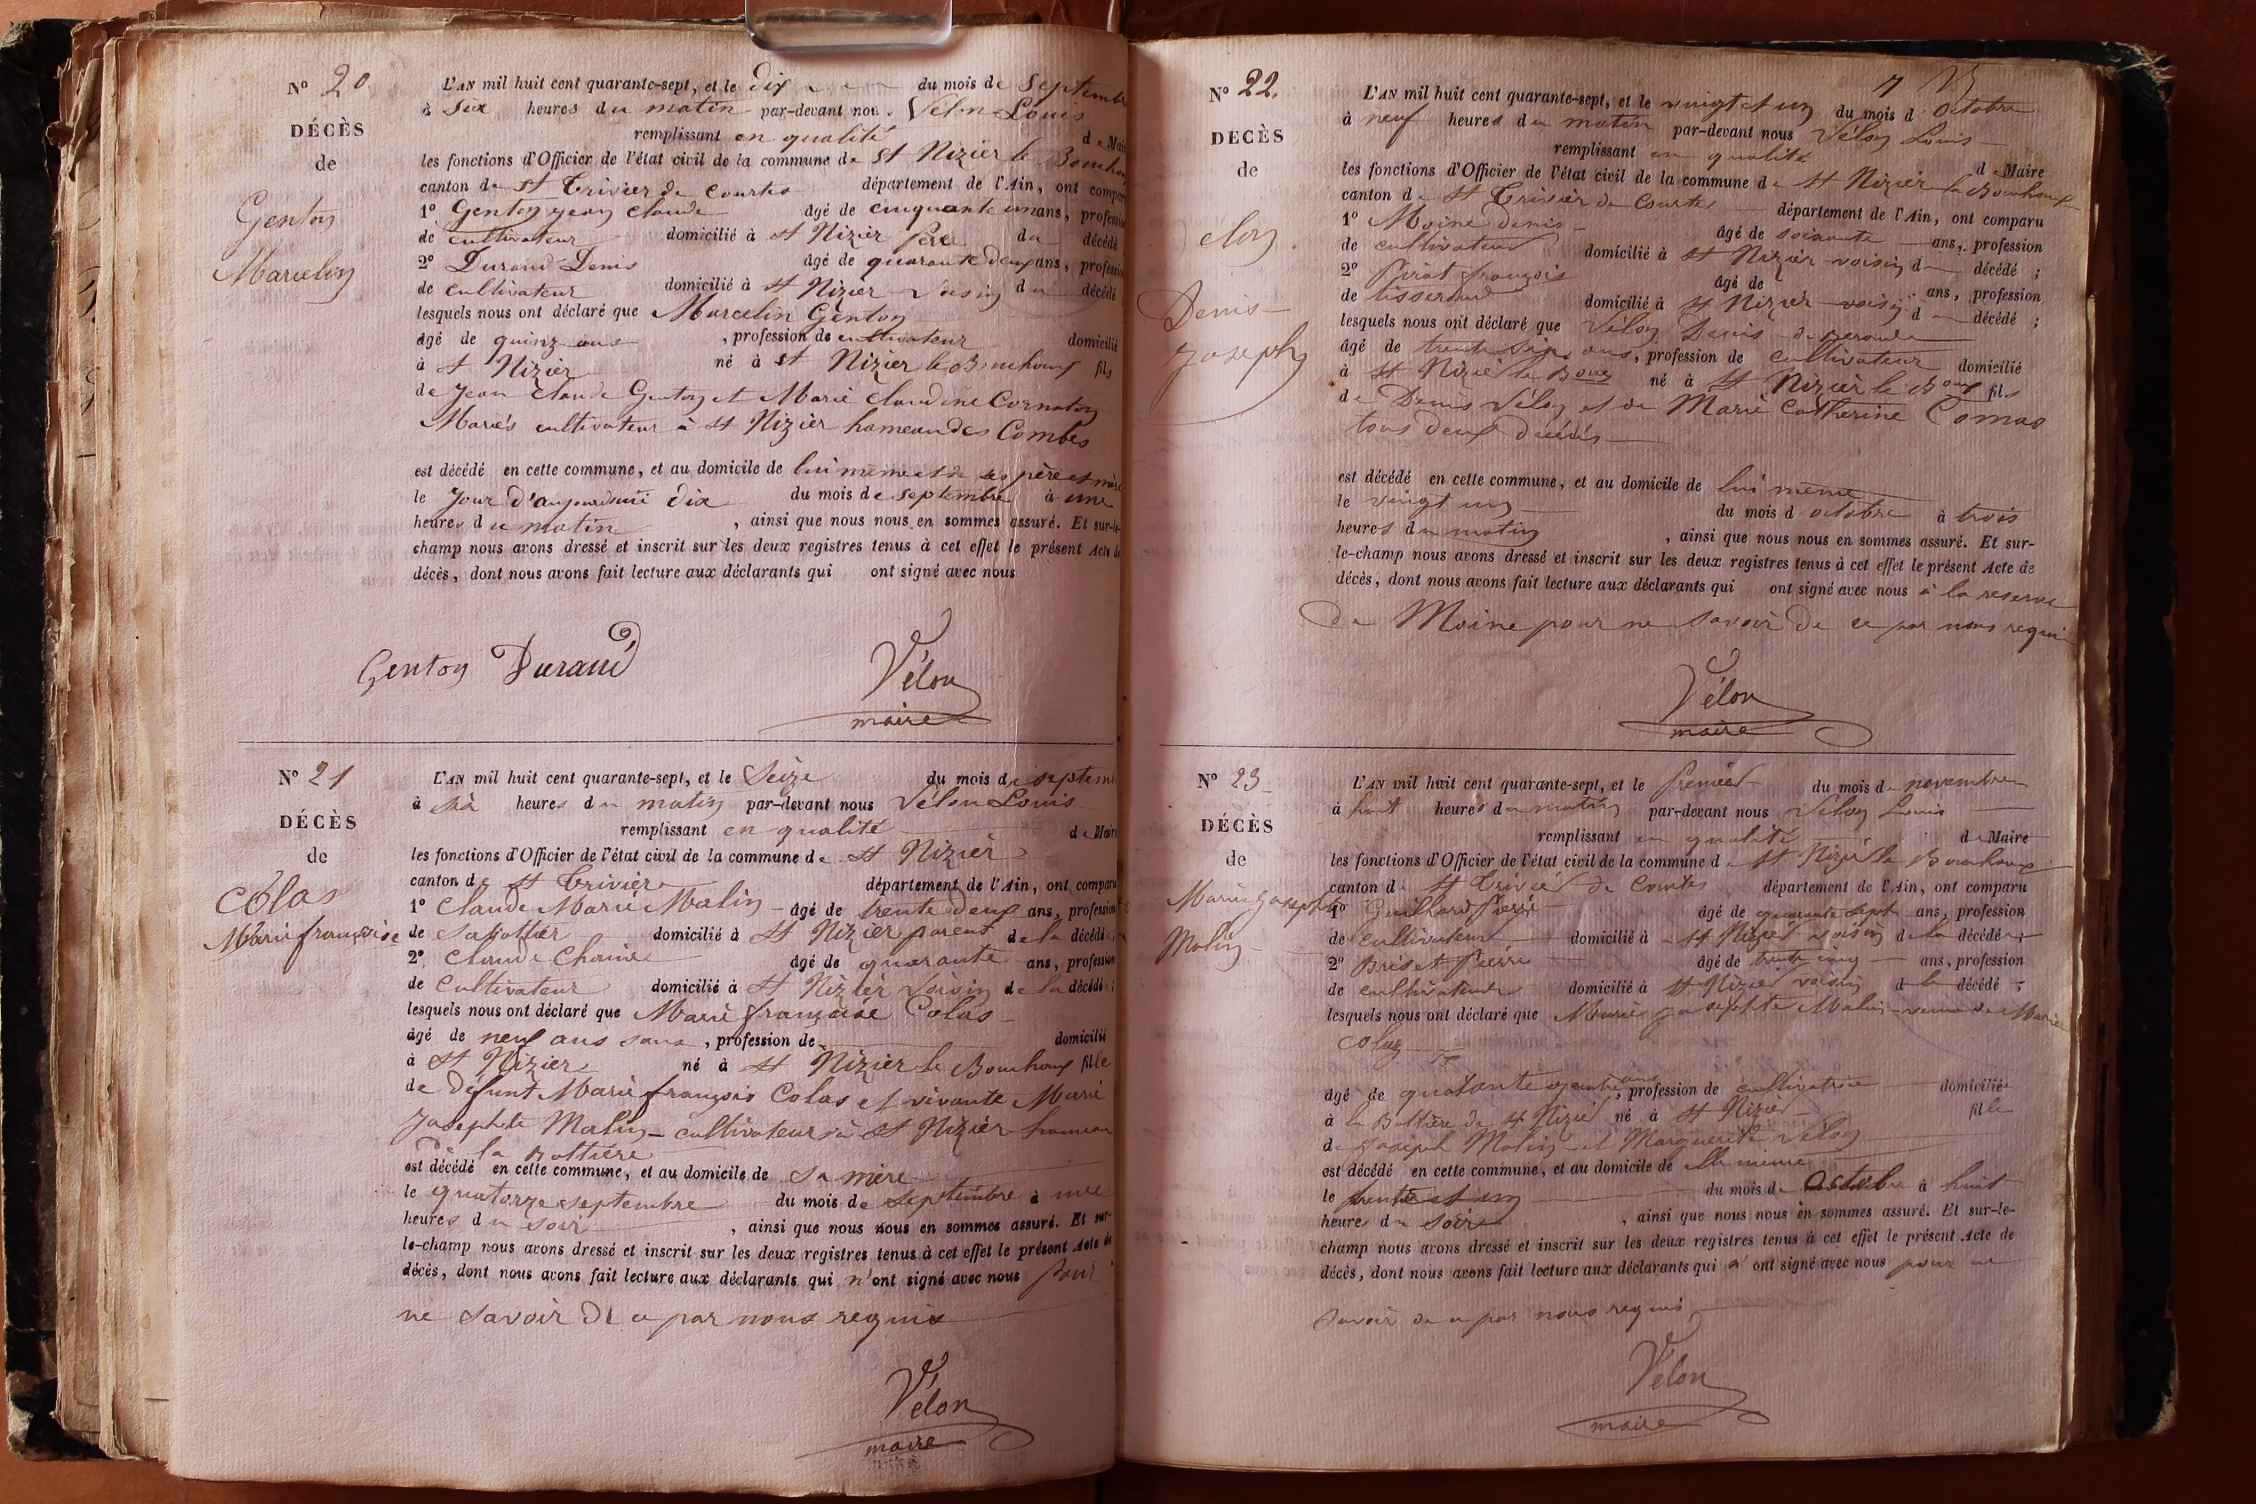 N° 20
DÉCÈS
de
Genton
Marcelin
L'AN mil huit cent quarante-sept, et le dix du mois de Septembre
à six heures du matin par-devant nous Vélon Louis
remplissant en qualité de Maire
les fonctions d'Officier de l'état civil de la commune de St Nizier le Bouchoux
canton de St Trivier de Courtes département de l'Ain, ont comparu
1° Genton jean Claude âgé de cinquante un ans, profession
de cultivateur domicilié à St Nizier père du décédé
2° Durand Denis âgé de quarante deux ans, profession
de cultivateur domicilié à St Nizier voisin du décédé
lesquels nous ont déclaré que Marcelin Genton
âgé de quinz ans, profession de cultivateur domicilié
à St Nizier né à St Nizier le Bouchoux fils
de Jean Claude Genton et Marie Claudine Cornaton
Mariés cultivateur à St Nizier hameau des Combes
est décédé en cette commune, et au domicile de lui même et de ses père et mère
le jour d'aujourdhui dix du mois de septembre à une
heures du matin, ainsi que nous nous en sommes assuré. Et sur-le-
champ nous avons dressé et inscrit sur les deux registres tenus à cet effet le présent Acte de
décès, dont nous avons fait lecture aux déclarants qui ont signé avec nous
Genton Durand Vélon
maire
N° 21
DÉCÈS
de
Colas
Marie françoise
L'AN mil huit cent quarante-sept, et le Seize du mois de septem
à six heures du matin par-devant nous Vélon Louis
remplissant en qualité de Maire
les fonctions d'Officier de l'état civil de la commune de St Nizier
canton de St Trivier département de l'Ain, ont comparu
1° Claude Marie Malin âgé de trente deux ans, profession
de sabottier domicilié à St Nizier parent de la décédé
2° Claude Chaine âgé de quarante ans, profession
de Cultivateur domicilié à St Nizier voisin de la décédé ;
lesquels nous ont déclaré que Marie françoise Colas
âgé de neuf ans sans, profession de domicilié
à St Nizier né à St Nizier le Bouchoux fille
de Défunt Marie françois Colas et vivante Marie
Josephte Malin cultivateur à St Nizier hameau
de la Bottière
est décédé en cette commune, et au domicile de sa mère
le quatorze septembre du mois de septembre à une
heures du soir, ainsi que nous nous en sommes assuré. Et sur-
le-champ nous avons dressé et inscrit sur les deux registres tenus à cet effet le présent Acte de
décès, dont nous avons fait lecture aux déclarants qui n'ont signé avec nous pour
ne savoir de ce par nous requis
Vélon
maire
N° 22.
DECÈS
de
elon
Denis
Joseph
L'AN mil huit cent quarante-sept, et le vingt et un du mois d Octobre
à neuf heures du matin par-devant nous Vélon Louis
remplissant en qualité de Maire
les fonctions d'Officier de l'état civil de la commune de St Nizier le Bouchoux
canton de St Trivier de Courtes département de l'Ain, ont comparu
1° Moine denis âgé de soixante ans, profession
de cultivateur domicilié à St Nizier voisin d décédé ;
2° Pirat françois âgé de ans, profession
de tisserand domicilié à St Nizier voisin d décédé ;
lesquels nous ont déclaré que Vélon Denis
âgé de trente ans, profession de cultivateur domicilié
à St Nizier le Boux né à St Nizier le Boux fils
de Denis Vélon et de Marie Catherine Comas
tous deux décédés
est décédé en cette commune, et au domicile de lui même
le vingt un du mois d octobre à trois
heures du matin, ainsi que nous nous en sommes assuré. Et sur-
le-champ nous avons dressé et inscrit sur les deux registres tenus à cet effet le présent Acte de
décès, dont nous avons fait lecture aux déclarants qui ont signé avec nous à la reserve
de Moine pour ne savoir de ce par nous requi
Vélon
maire
N° 23
DÉCÈS
de
Marie Josephte
Malin
L'AN mil huit cent quarante-sept, et le premier du mois de novembre
à huit heures du matin par-devant nous Vélon Louis
remplissant en qualité de Maire
les fonctions d'Officier de l'état civil de la commune de St Nizier le Bouchoux
canton de St Trivier de Courtes département de l'Ain, ont comparu
1° Guillard Pierre âgé de quarante sept ans, profession
de cultivateur domicilié à St Nizier voisin de la décédée ;
2° Brevet Pierre âgé de trente cinq ans, profession
de cultivateur domicilié à St Nizier voisin d la décédé ;
lesquels nous ont déclaré que Marie josephte Malin veuve de Marie
Colas
âgé de quarante ans, profession de cultivatrice domicilié
à la Bottière de St Nizier né à St Nizier fille
de Joseph Malin et Marguerite Vélon
est décédé en cette commune, et au domicile de elle même
le trente et un du mois de Octobre à huit
heures du soir, ainsi que nous nous en sommes assuré. Et sur-le-
champ nous avons dressé et inscrit sur les deux registres tenus à cet effet le présent Acte de
décès, dont nous avons fait lecture aux déclarants qui n'ont signé avec nous pour ne
savoir de ce par nous requis
Vélon
maire